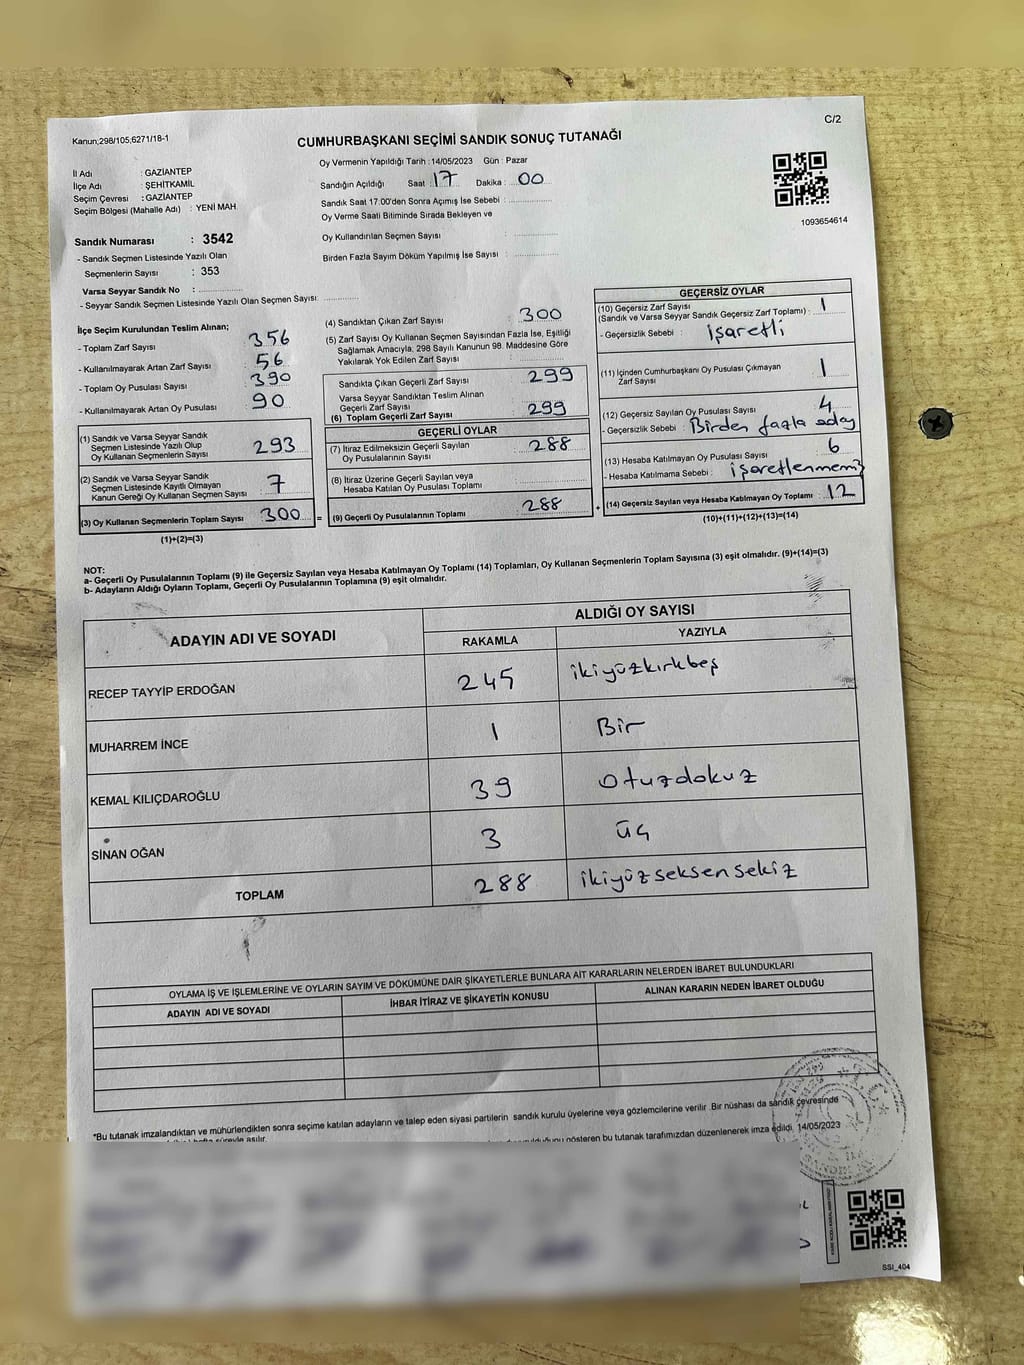 Kanun;298/105;6271/18-1
C/2
CUMHURBAŞKANI SEÇİMİ SANDIK SONUÇ TUTANAĞI
İl Adı : GAZİANTEP
İlçe Adı : ŞEHİTKAMİL
Seçim Çevresi : GAZİANTEP
Seçim Bölgesi (Mahalle Adı) : YENİ MAH.
Oy Vermenin Yapıldığı Tarih : 14/05/2023 Gün : Pazar
Sandığın Açıldığı Saat : 17 Dakika : 00
Sandık Saat 17:00'den Sonra Açımış İse Sebebi :
Oy Verme Saati Bitiminde Sırada Bekleyen ve
Oy Kullandırılan Seçmen Sayısı :
Birden Fazla Sayım Döküm Yapılmış İse Sayısı :
1093654614
Sandık Numarası : 3542
- Sandık Seçmen Listesinde Yazılı Olan
Seçmenlerin Sayısı : 353
Varsa Seyyar Sandık No :
- Seyyar Sandık Seçmen Listesinde Yazılı Olan Seçmen Sayısı:
İlçe Seçim Kurulundan Teslim Alınan;
- Toplam Zarf Sayısı 356
- Kullanılmayarak Artan Zarf Sayısı 56
- Toplam Oy Pusulası Sayısı 390
- Kullanılmayarak Artan Oy Pusulası 90
(1) Sandık ve Varsa Seyyar Sandık
Seçmen Listesinde Yazılı Olup
Oy Kullanan Seçmenlerin Sayısı 293
(2) Sandık ve Varsa Seyyar Sandık
Seçmen Listesinde Kayıtlı Olmayan
Kanun Gereği Oy Kullanan Seçmen Sayısı 7
(3) Oy Kullanan Seçmenlerin Toplam Sayısı 300 =
(1)+(2)=(3)
(4) Sandıktan Çıkan Zarf Sayısı : 300
(5) Zarf Sayısı Oy Kullanan Seçmen Sayısından Fazla İse, Eşitliği
Sağlamak Amacıyla, 298 Sayılı Kanunun 98. Maddesine Göre
Yakılarak Yok Edilen Zarf Sayısı :
Sandıkta Çıkan Geçerli Zarf Sayısı : 299
Varsa Seyyar Sandıktan Teslim Alınan
Geçerli Zarf Sayısı :
(6) Toplam Geçerli Zarf Sayısı : 299
GEÇERLİ OYLAR
(7) İtiraz Edilmeksizin Geçerli Sayılan
Oy Pusulalarının Sayısı : 288
(8) İtiraz Üzerine Geçerli Sayılan veya
Hesaba Katılan Oy Pusulası Toplamı :
(9) Geçerli Oy Pusulalarının Toplamı : 288 +
GEÇERSİZ OYLAR
(10) Geçersiz Zarf Sayısı
(Sandık ve Varsa Seyyar Sandık Geçersiz Zarf Toplamı) : 1
- Geçersizlik Sebebi : işaretli
(11) İçinden Cumhurbaşkanı Oy Pusulası Çıkmayan
Zarf Sayısı : 1
(12) Geçersiz Sayılan Oy Pusulası Sayısı : 4
- Geçersizlik Sebebi : Birden fazla aday
(13) Hesaba Katılmayan Oy Pusulası Sayısı : 6
- Hesaba Katılmama Sebebi : işaretlenmemiş
(14) Geçersiz Sayılan veya Hesaba Katılmayan Oy Toplamı : 12
(10)+(11)+(12)+(13)=(14)
NOT:
a- Geçerli Oy Pusulalarının Toplamı (9) ile Geçersiz Sayılan veya Hesaba Katılmayan Oy Toplamı (14) Toplamları, Oy Kullanan Seçmenlerin Toplam Sayısına (3) eşit olmalıdır. (9)+(14)=(3)
b- Adayların Aldığı Oyların Toplamı, Geçerli Oy Pusulalarının Toplamına (9) eşit olmalıdır.
ADAYIN ADI VE SOYADI
ALDIĞI OY SAYISI
RAKAMLA YAZIYLA
RECEP TAYYİP ERDOĞAN 245 ikiyüzkırkbeş
MUHARREM İNCE 1 Bir
KEMAL KILIÇDAROĞLU 39 otuzdokuz
SİNAN OĞAN 3 üç
TOPLAM 288 ikiyüzseksensekiz
OYLAMA İŞ VE İŞLEMLERİNE VE OYLARIN SAYIM VE DÖKÜMÜNE DAİR ŞİKAYETLERLE BUNLARA AİT KARARLARIN NELERDEN İBARET BULUNDUKLARI
ADAYIN ADI VE SOYADI
İHBAR İTİRAZ VE ŞİKAYETİN KONUSU
ALINAN KARARIN NEDEN İBARET OLDUĞU
*Bu tutanak imzalandıktan ve mühürlendikten sonra seçime katılan adayların ve talep eden siyasi partilerin sandık kurulu üyelerine veya gözlemcilerine verilir. Bir nüshası da sandık çevresinde
hafta süreyle asılır.
gösteren bu tutanak tarafımızdan düzenlenerek imza edildi. 14/05/2023
SSI_404